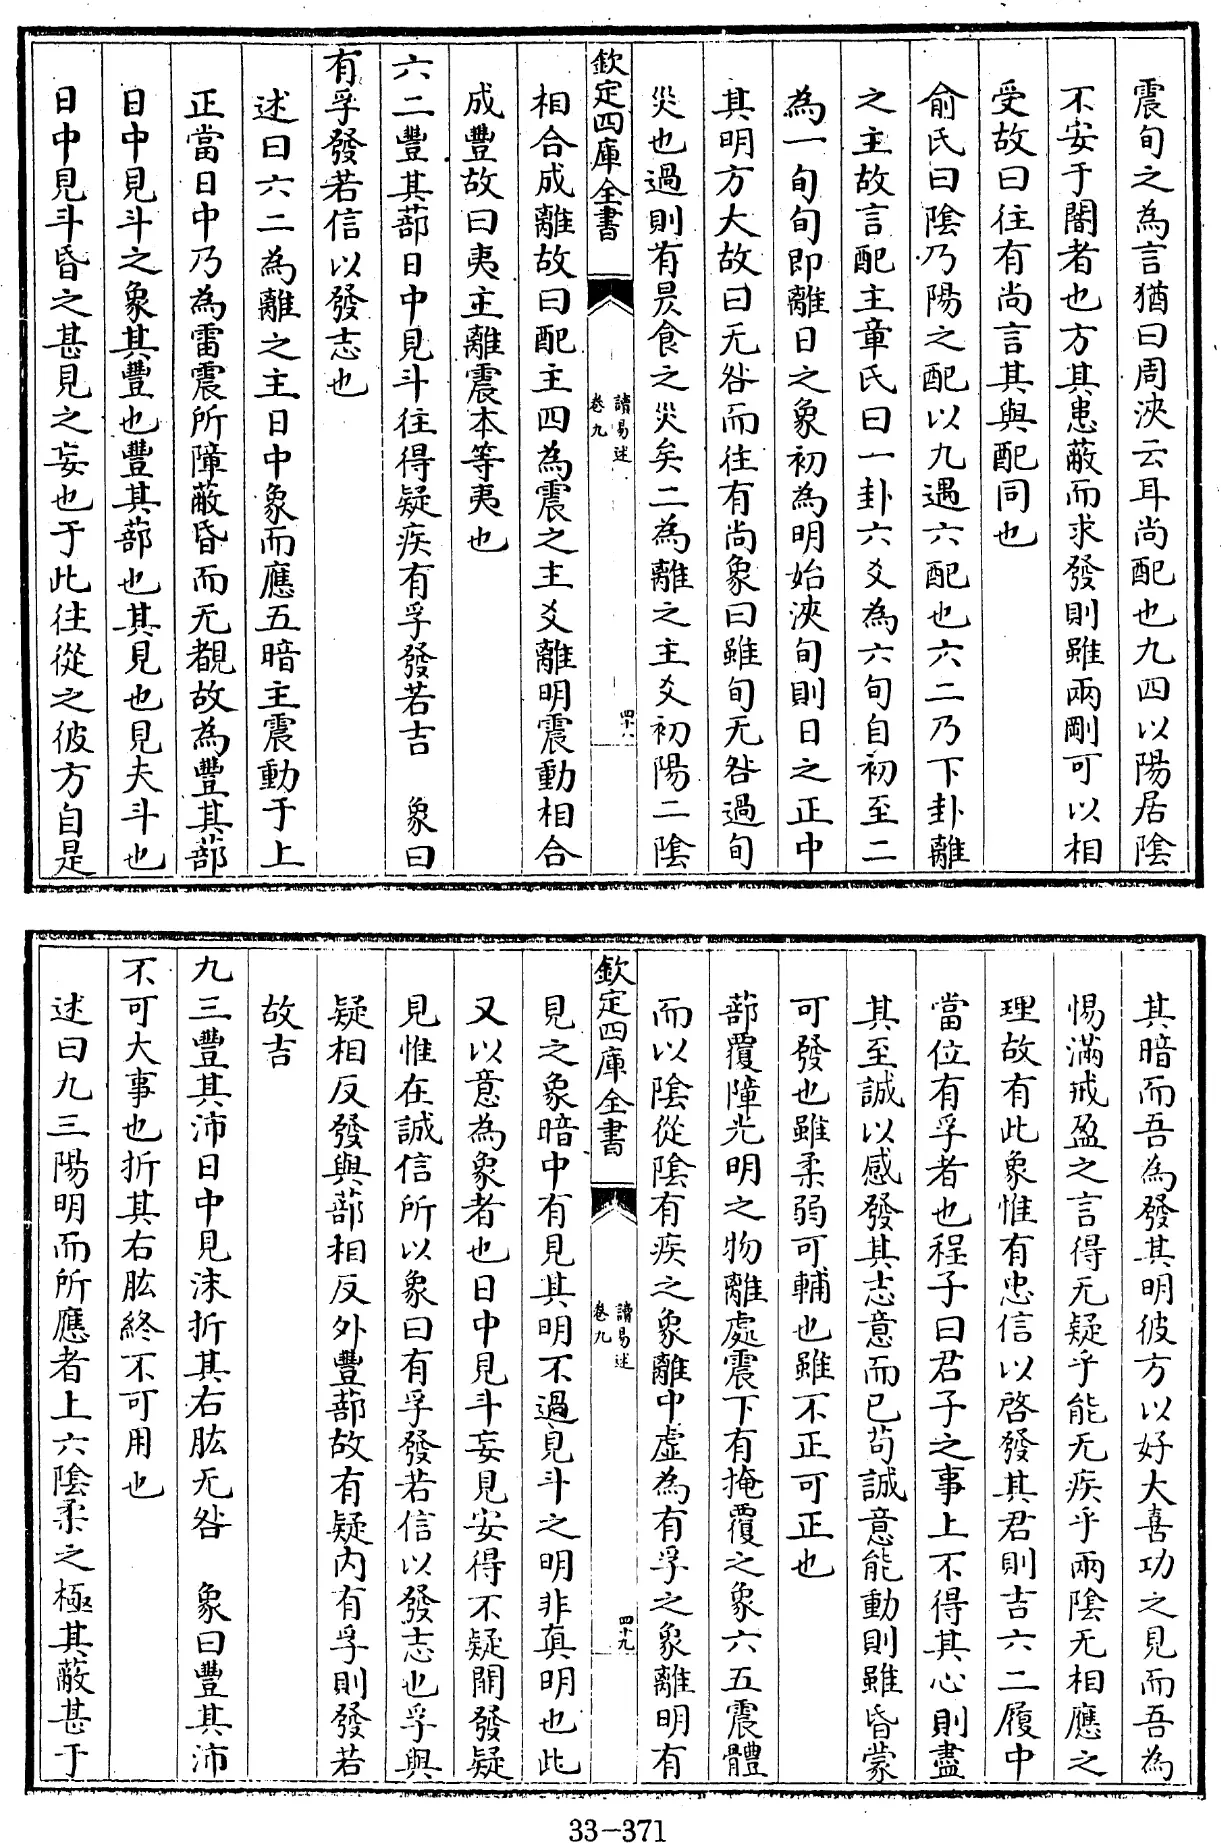 震旬之為言猶曰周浹云耳尚配也九四以陽居陰
不安于闇者也方其患蔽而求發則雖兩剛可以相
受故曰往有尚言其與配同也
俞氏曰陰乃陽之配以九遇六配也六二乃下卦離
之主故言配主章氏曰一卦六爻為六旬自初至二
為一旬旬即離日之象初為明始浹旬則日之正中
其明方大故曰无咎而往有尚象曰雖旬无咎過旬
災也過則有昃食之災矣二為離之主爻初陽二陰
欽定四庫全書
讀易述
卷九
四十八
相合成離故曰配主四為震之主爻離明震動相合
成豐故曰夷主離震本等夷也
六二豐其蔀日中見斗往得疑疾有孚發若吉　象曰
有孚發若信以發志也
述曰六二為離之主日中象而應五暗主震動于上
正當日中乃為雷震所障蔽昏而无覩故為豐其蔀
日中見斗之象其豐也豐其蔀也其見也見夫斗也
日中見斗昏之甚見之妄也于此往從之彼方自是
其暗而吾為發其明彼方以好大喜功之見而吾為
惕滿戒盈之言得无疑乎能无疾乎兩陰无相應之
理故有此象惟有忠信以啓發其君則吉六二履中
當位有孚者也程子曰君子之事上不得其心則盡
其至誠以感發其志意而已苟誠意能動則雖昏蒙
可發也雖柔弱可輔也雖不正可正也
蔀覆障光明之物離處震下有掩覆之象六五震體
而以陰從陰有疾之象離中虛為有孚之象離明有
欽定四庫全書
讀易述
卷九
四十九
見之象暗中有見其明不過見斗之明非真明也此
又以意為象者也日中見斗妄見安得不疑開發疑
見惟在誠信所以象曰有孚發若信以發志也孚與
疑相反發與蔀相反外豐蔀故有疑内有孚則發若
故吉
九三豐其沛日中見沬折其右肱无咎　象曰豐其沛
不可大事也折其右肱終不可用也
述曰九三陽明而所應者上六陰柔之極其蔽甚于
33-371